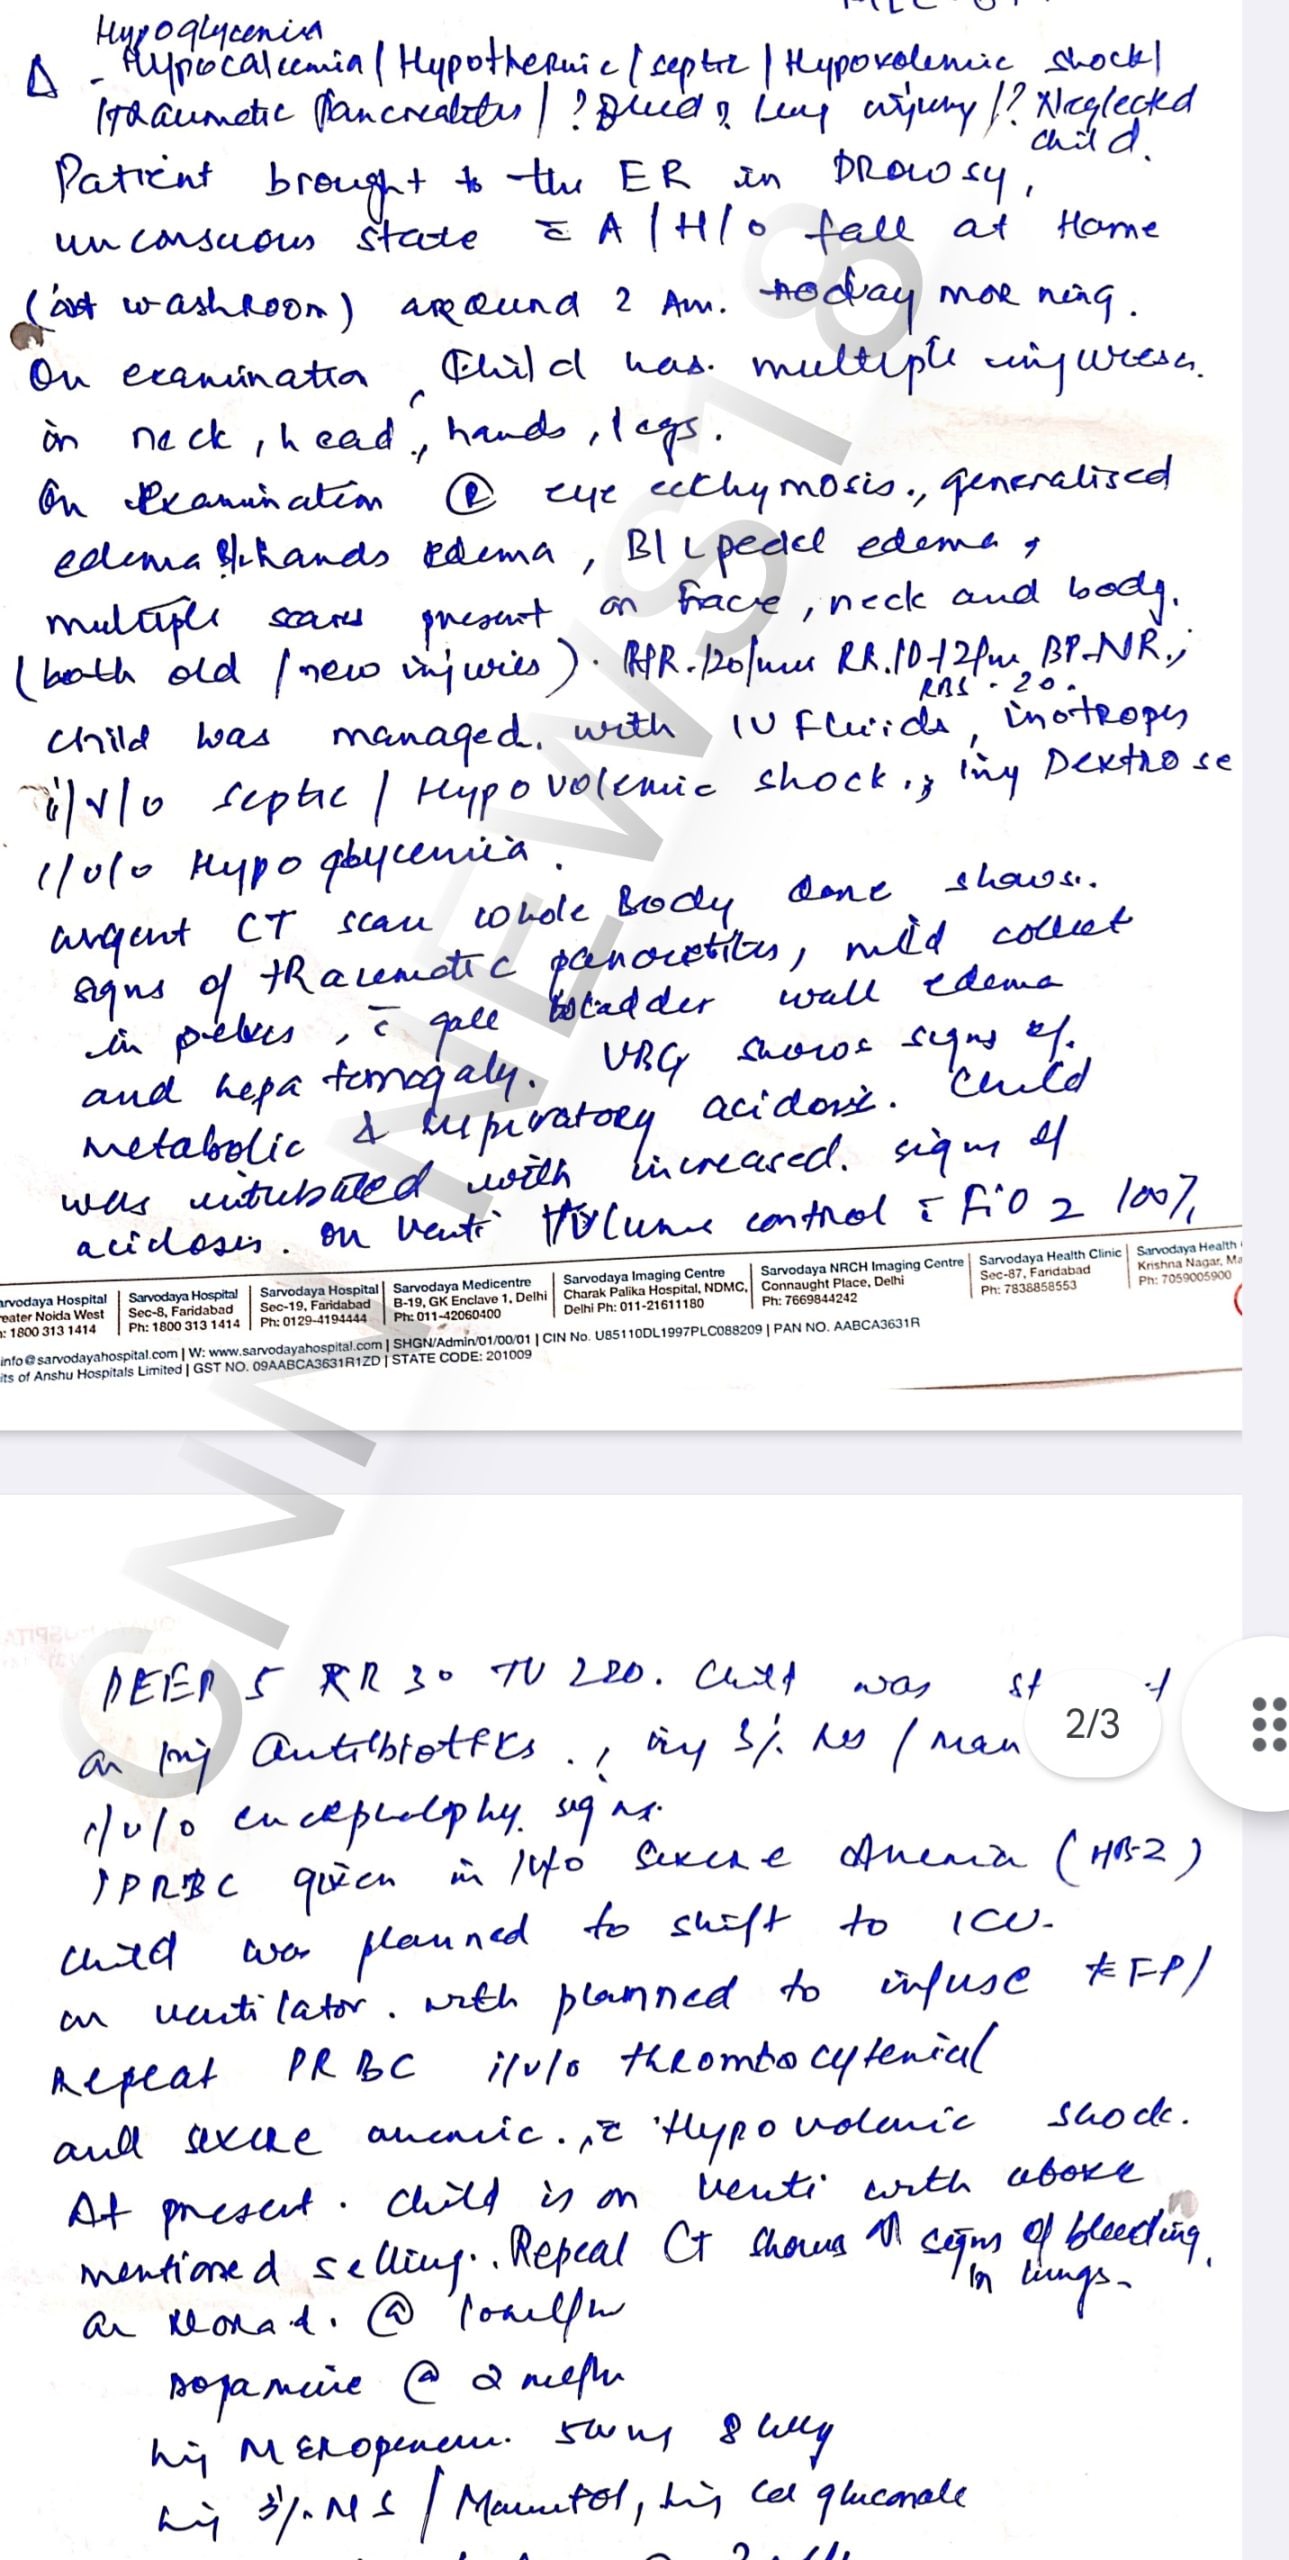 Hypoglycemia
Δ - Hypocalcemia / Hypothermic / septic / Hypovolemic shock /
traumatic Pancreatitis / ? Lung injury / ? Neglected
child.
Patient brought to the ER in DROWSY,
unconscuous state c̄ A/H/o fall at Home
(at washroom) around 2 Am. today morning.
On examination, Child has. multiple injuries.
in neck, head, hands, legs.
On Examination eye ecchymosis., generalised
edema hands edema, B/L pedel edema,
multiple scars present on Face, neck and body.
(both old / new injuries). HR-120/min RR.10-12/m BP-NR.;
RBS - 20.
child was managed. with IV Fluids, inotropes
i/v/o septic / Hypovolemic shock., inj Dextrose
i/v/o Hypoglycemia.
urgent CT scan whole Body done shows.
signs of tRaumatic pancretitis, mild collect
in pelvis, c̄ gall bladder wall edema
and hepatomogaly. VBG shows signs of.
metabolic & respiratory acidosis. Child
was intubated with increased. signs of
acidosis. on venti Volume control c̄ FiO2 100%
arvodaya Hospital
reater Noida West
: 1800 313 1414
Sarvodaya Hospital
Sec-8, Faridabad
Ph: 1800 313 1414
Sarvodaya Hospital
Sec-19, Faridabad
Ph: 0129-4194444
Sarvodaya Medicentre
B-19, GK Enclave 1, Delhi
Ph: 011-42060400
Sarvodaya Imaging Centre
Charak Palika Hospital, NDMC,
Delhi Ph: 011-21611180
Sarvodaya NRCH Imaging Centre
Connaught Place, Delhi
Ph: 7669844242
Sarvodaya Health Clinic
Sec-87, Faridabad
Ph: 7838858553
Sarvodaya Health
Krishna Nagar, Ma
Ph: 7059005900
info@sarvodayahospital.com | W: www.sarvodayahospital.com | SHGN/Admin/01/00/01 | CIN No. U85110DL1997PLC088209 | PAN NO. AABCA3631R
its of Anshu Hospitals Limited | GST NO. 09AABCA3631R1ZD | STATE CODE: 201009
CNN NEWS18
PEEP 5 RR 30 TV 220. Child was st
on inj Antibiotics., inj 3% NS / man
2/3
i/v/o encephalophy signs.
1 PRBC given in i/v/o severe Anemia (HB-2)
child was planned to shift to ICU.
on ventilator. with planned to infuse FFP/
Repeat PRBC i/v/o thrombocytenia/
and severe anemic., c̄ Hypovolemic shock.
At present. child is on venti with above
mentioned setting.. Repeat CT shows signs of bleeding,
in lungs.
on Norad. @
Dopamine @ 2
inj MERopenem. 500mg 8
inj 3% NS / Mannitol, inj Cal gluconate